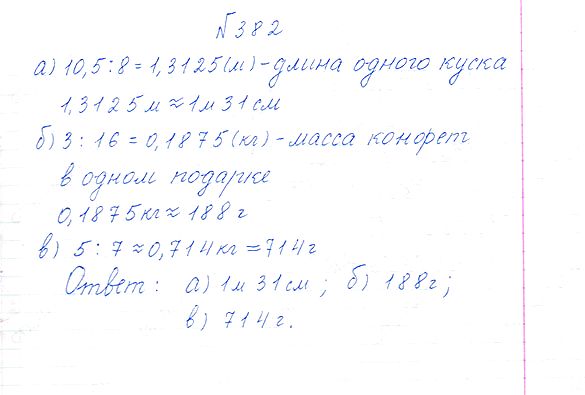 №382
а) 10,5 : 8 = 1,3125 (м) - длина одного куска
1,3125 м ≈ 1 м 31 см
б) 3 : 16 = 0,1875 (кг) - масса конфет
в одном подарке
0,1875 кг ≈ 188 г
в) 5 : 7 ≈ 0,714 кг = 714 г
Ответ: а) 1 м 31 см; б) 188 г;
в) 714 г.